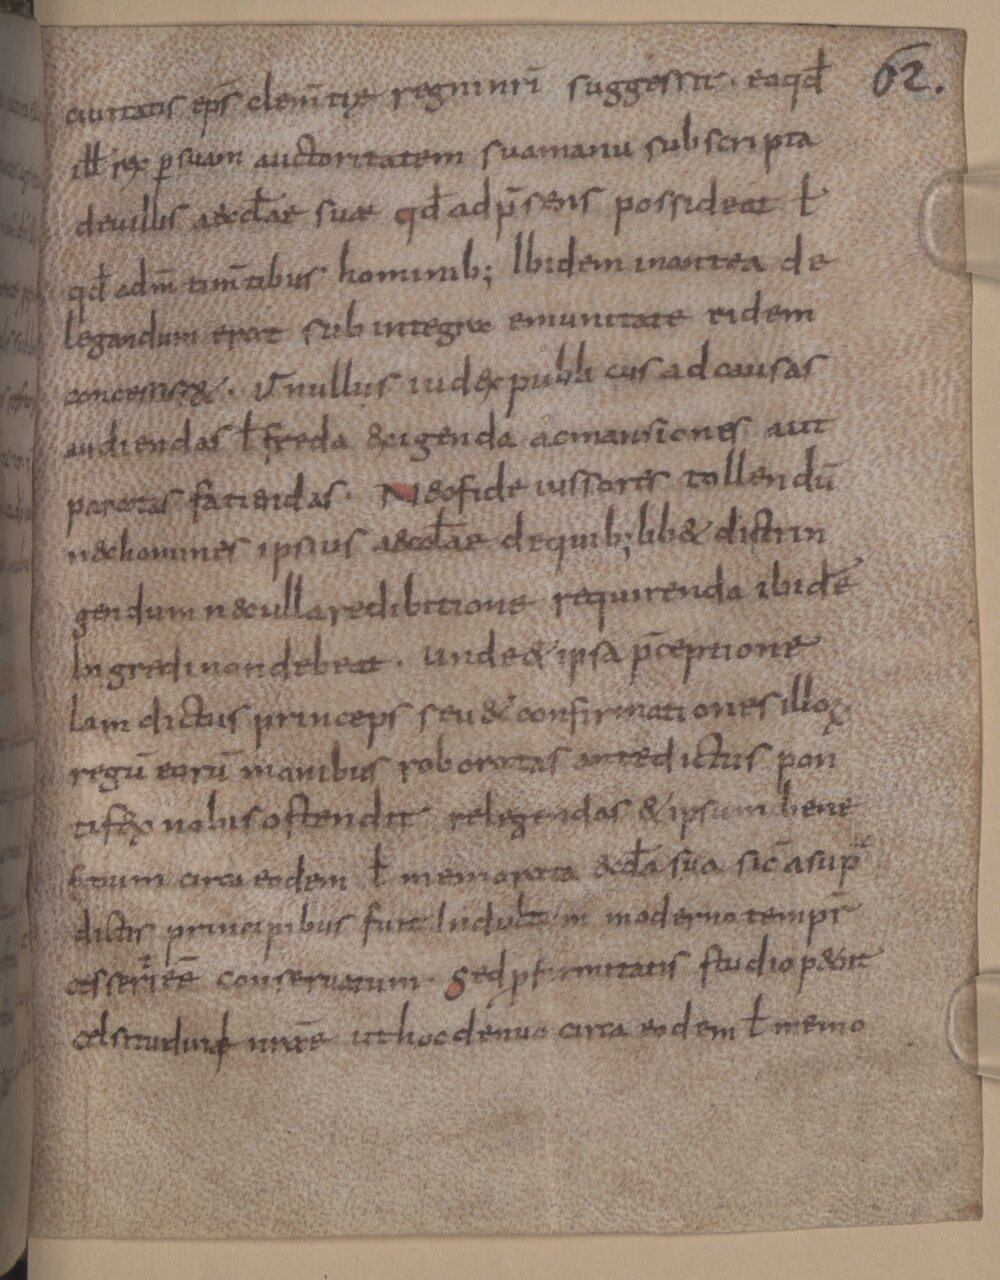 62.
ciuitatis ep̄s clem̄tiȩ regni nr̄i suggessit · eo qđ
ill̄ rex ꝑ suam auctoritatem sua manu subscripta
de uillis aeccłae suae qđ ad p̄sens possideat ł
qđ a dm̄ tim̄tibus hominib; Ibidem in antea de
legandum erat sub integra emunitate eidem
concessiss&· Ut nullus iudex publicus ad causas
audiendas ł freda exigenda ac mansiones aut
paratas faciendas · N& fideiussores tollendū
n& homines ipsius aeccłae de quib;lib& distrin
gendum n& ulla redibitione requirenda ibidē
Ingredi non debeat · unde & ipsa p̄ceptione
Iam dictus princeps seu & confirmationes illoꝝ
regū eorū manibus roboratas antedictus pon
tifex nobis ostendit relegendas & ipsum bene
ficium circa eodem ł memorata eccła sua sic a sup
dictis principibus fuit Indultum moderno tempr̄
asserit ee conseruatum · Sed ꝓ firmitatis studio p&iit
celsitudinē nr̄ae ut hoc denuo circa eodem ł memo